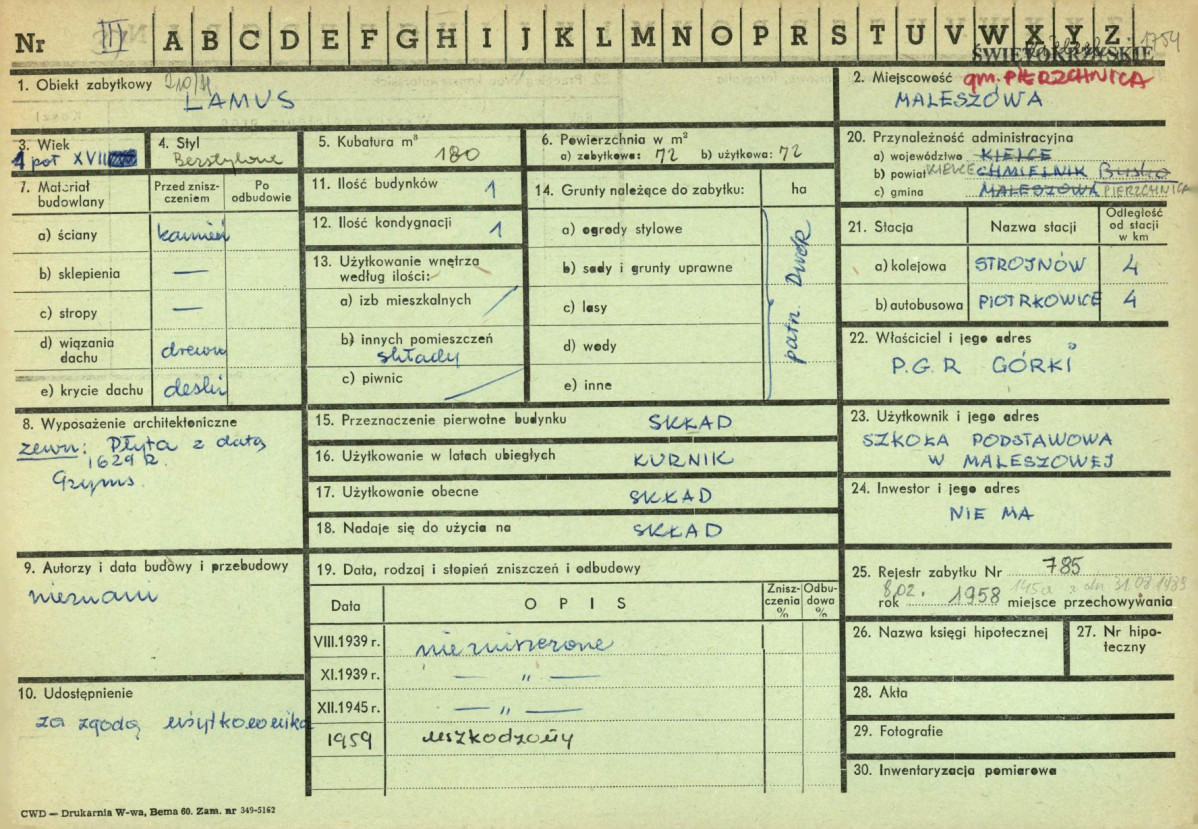 Nr III A B C D E F G H I J K L M N O P R S T U V W X Y Z 1754
ŚWIĘTOKRZYSKIE
1. Obiekt zabytkowy
LAMUS
2. Miejscowość gm. PIERZCHNICA
MALESZOWA
3. Wiek
1 poł XVII
4. Styl
Bezstylowe
5. Kubatura m³
180
6. Powierzchnia w m²
a) zabytkowa: 72 b) użytkowa: 72
20. Przynależność administracyjna
a) województwo KIELCE
b) powiat KIELCE CHMIELNIK Busko
c) gmina MALESZOWA PIERZCHNICA
7. Materiał budowlany
Przed zniszczeniem
Po odbudowie
a) ściany kamień
b) sklepienia —
c) stropy —
d) wiązania dachu drewn
e) krycie dachu deski
11. Ilość budynków 1
12. Ilość kondygnacji 1
13. Użytkowanie wnętrza według ilości:
a) izb mieszkalnych
b) innych pomieszczeń
składy
c) piwnic
14. Grunty należące do zabytku: ha
a) ogrody stylowe
b) sady i grunty uprawne
c) lasy
d) wody
e) inne
patrz Dwór
21. Stacja Nazwa stacji Odległość od stacji w km
a) kolejowa STROJNÓW 4
b) autobusowa PIOTRKOWICE 4
22. Właściciel i jego adres
P.G.R GÓRKI
8. Wyposażenie architektoniczne
zewn: Płyta z datą
1629 R.
Gzyms.
15. Przeznaczenie pierwotne budynku SKŁAD
16. Użytkowanie w latach ubiegłych KURNIK
17. Użytkowanie obecne SKŁAD
18. Nadaje się do użycia na SKŁAD
23. Użytkownik i jego adres
SZKOŁA PODSTAWOWA
W MALESZOWEJ
24. Inwestor i jego adres
NIE MA
9. Autorzy i data budowy i przebudowy
nieznani
10. Udostępnienie
za zgodą użytkownika
19. Data, rodzaj i stopień zniszczeń i odbudowy
Data OPIS Zniszczenia % Odbudowa %
VIII.1939 r. niezniszczone
XI.1939 r. — „ —
XII.1945 r. — „ —
1959 uszkodzony
25. Rejestr zabytku Nr 785
8.02. 145a z dn 31.08.1983
rok 1958 miejsce przechowywania
26. Nazwa księgi hipotecznej
27. Nr hipoteczny
28. Akta
29. Fotografie
30. Inwentaryzacja pomiarowa
CWD — Drukarnia W-wa, Bema 60. Zam. nr 349-5162